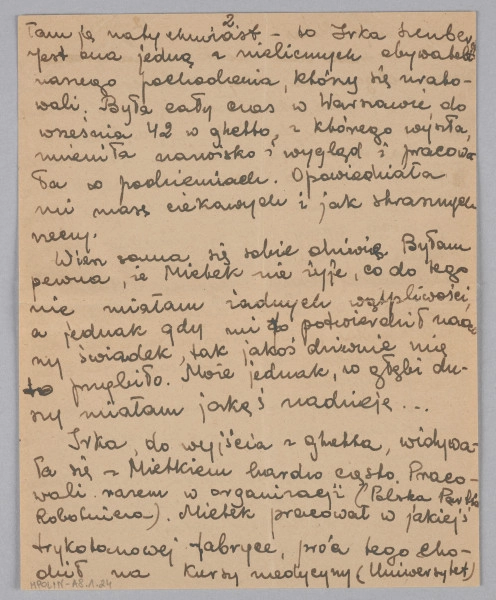 2
łam ją natychmiast - to Irka Szenberg.
Jest ona jedną z nielicznych obywateli
naszego pochodzenia, którzy się urato-
wali. Była cały czas w Warszawie do
września 42 w ghetto, z którego wyszła,
zmieniła nazwisko i wygląd i pracowa-
ła w podziemiach. Opowiedziała
mi masę ciekawych i jak strasznych
rzeczy.
Wiesz sama się sobie dziwię. Byłam
pewna, że Mietek nie żyje, co do tego
nie miałam żadnych wątpliwości,
a jednak gdy mi to potwierdził naocz-
ny świadek, tak jakoś dziwnie mię
to przybiło. Może jednak, w głębi du-
szy miałam jakąś nadzieję...
Irka, do wyjścia z ghetta, widywa-
ła się z Mietkiem bardzo często. Praco-
wali razem w organizacji (Polska Partia
Robotnicza). Mietek pracował w jakiejś
trykotażowej fabryce, próż tego cho-
dził na kursy medycyny (Uniwersytet)
MPOLIN-A8.1.24